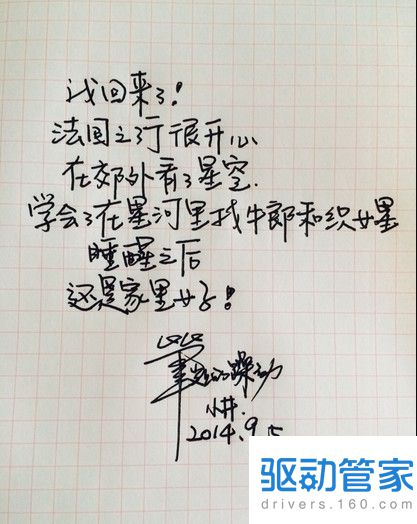 我回来了!
法国之行很开心
在郊外看了星空.
学会了在星河里找牛郎和织女星
睡醒之后
还是家里好!
笔迹的躁动
小井.
2014.9.5
驱动管家
drivers.160.com